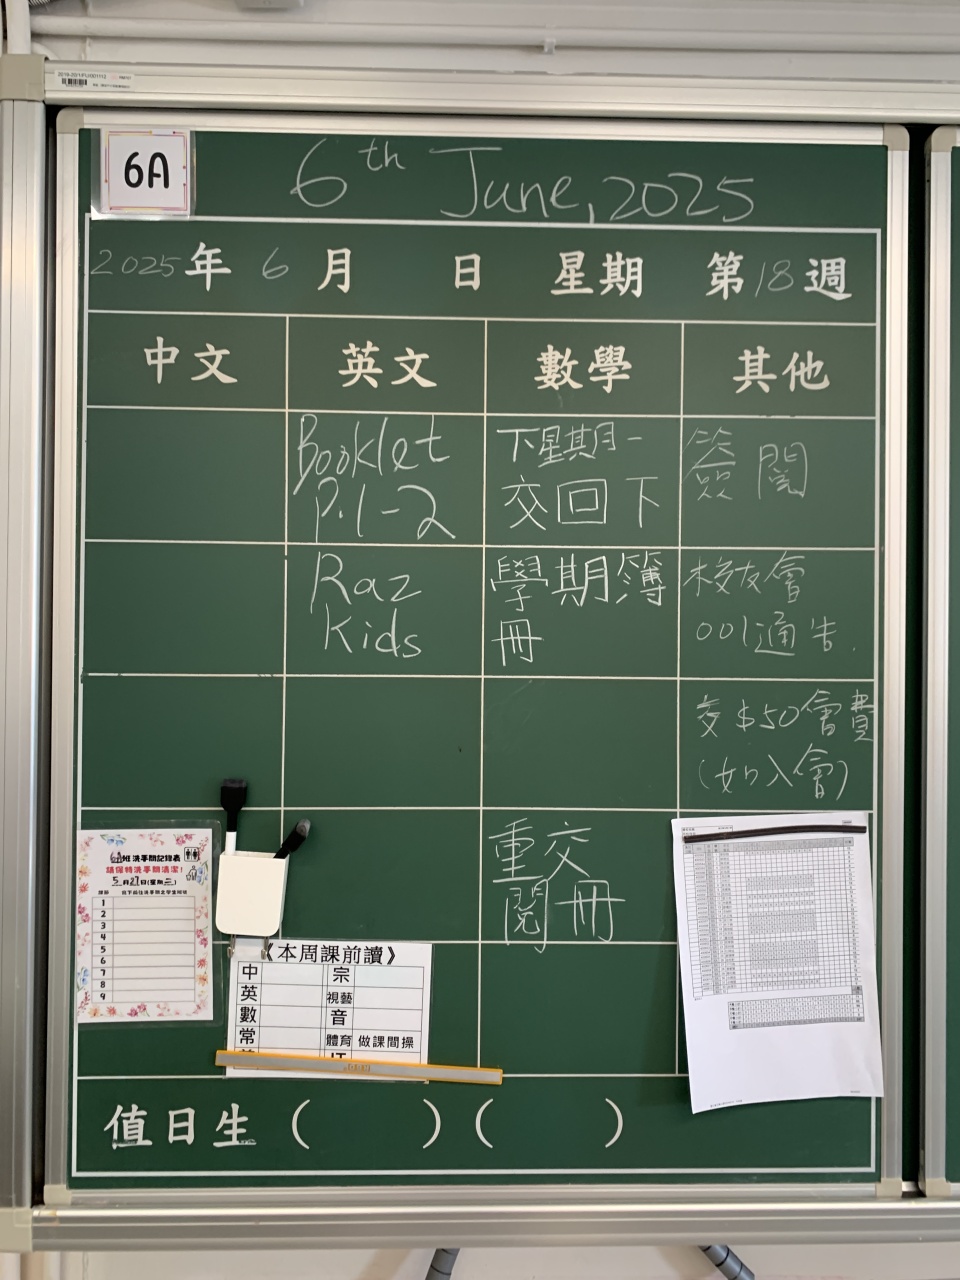 6A
6th June, 2025
2025年 6 月 日 星期 第18週
中文 英文 數學 其他
Booklet
P.1-2
下星期一
交回下
簽閱
Raz
Kids
學期簿
冊
校友會
001通告.
交$50會費
(如入會)
重交
閱冊
班洗手間記錄表
請保持洗手間清潔!
5月27日(星期二)
1
2
3
4
5
6
7
8
9
《本周課前讀》
中 宗
英 視藝
數 音
常 體育 做課間操
IT
值日生 ( ) ( )